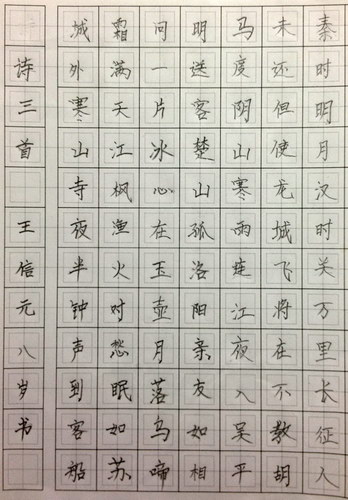 秦时明月汉时关万里长征人
未还但使龙城飞将在不教胡
马度阴山寒雨连江夜入吴平
明送客楚山孤洛阳亲友如相
问一片冰心在玉壶月落乌啼
霜满天江枫渔火对愁眠姑苏
城外寒山寺夜半钟声到客船
诗三首 王信元八岁书